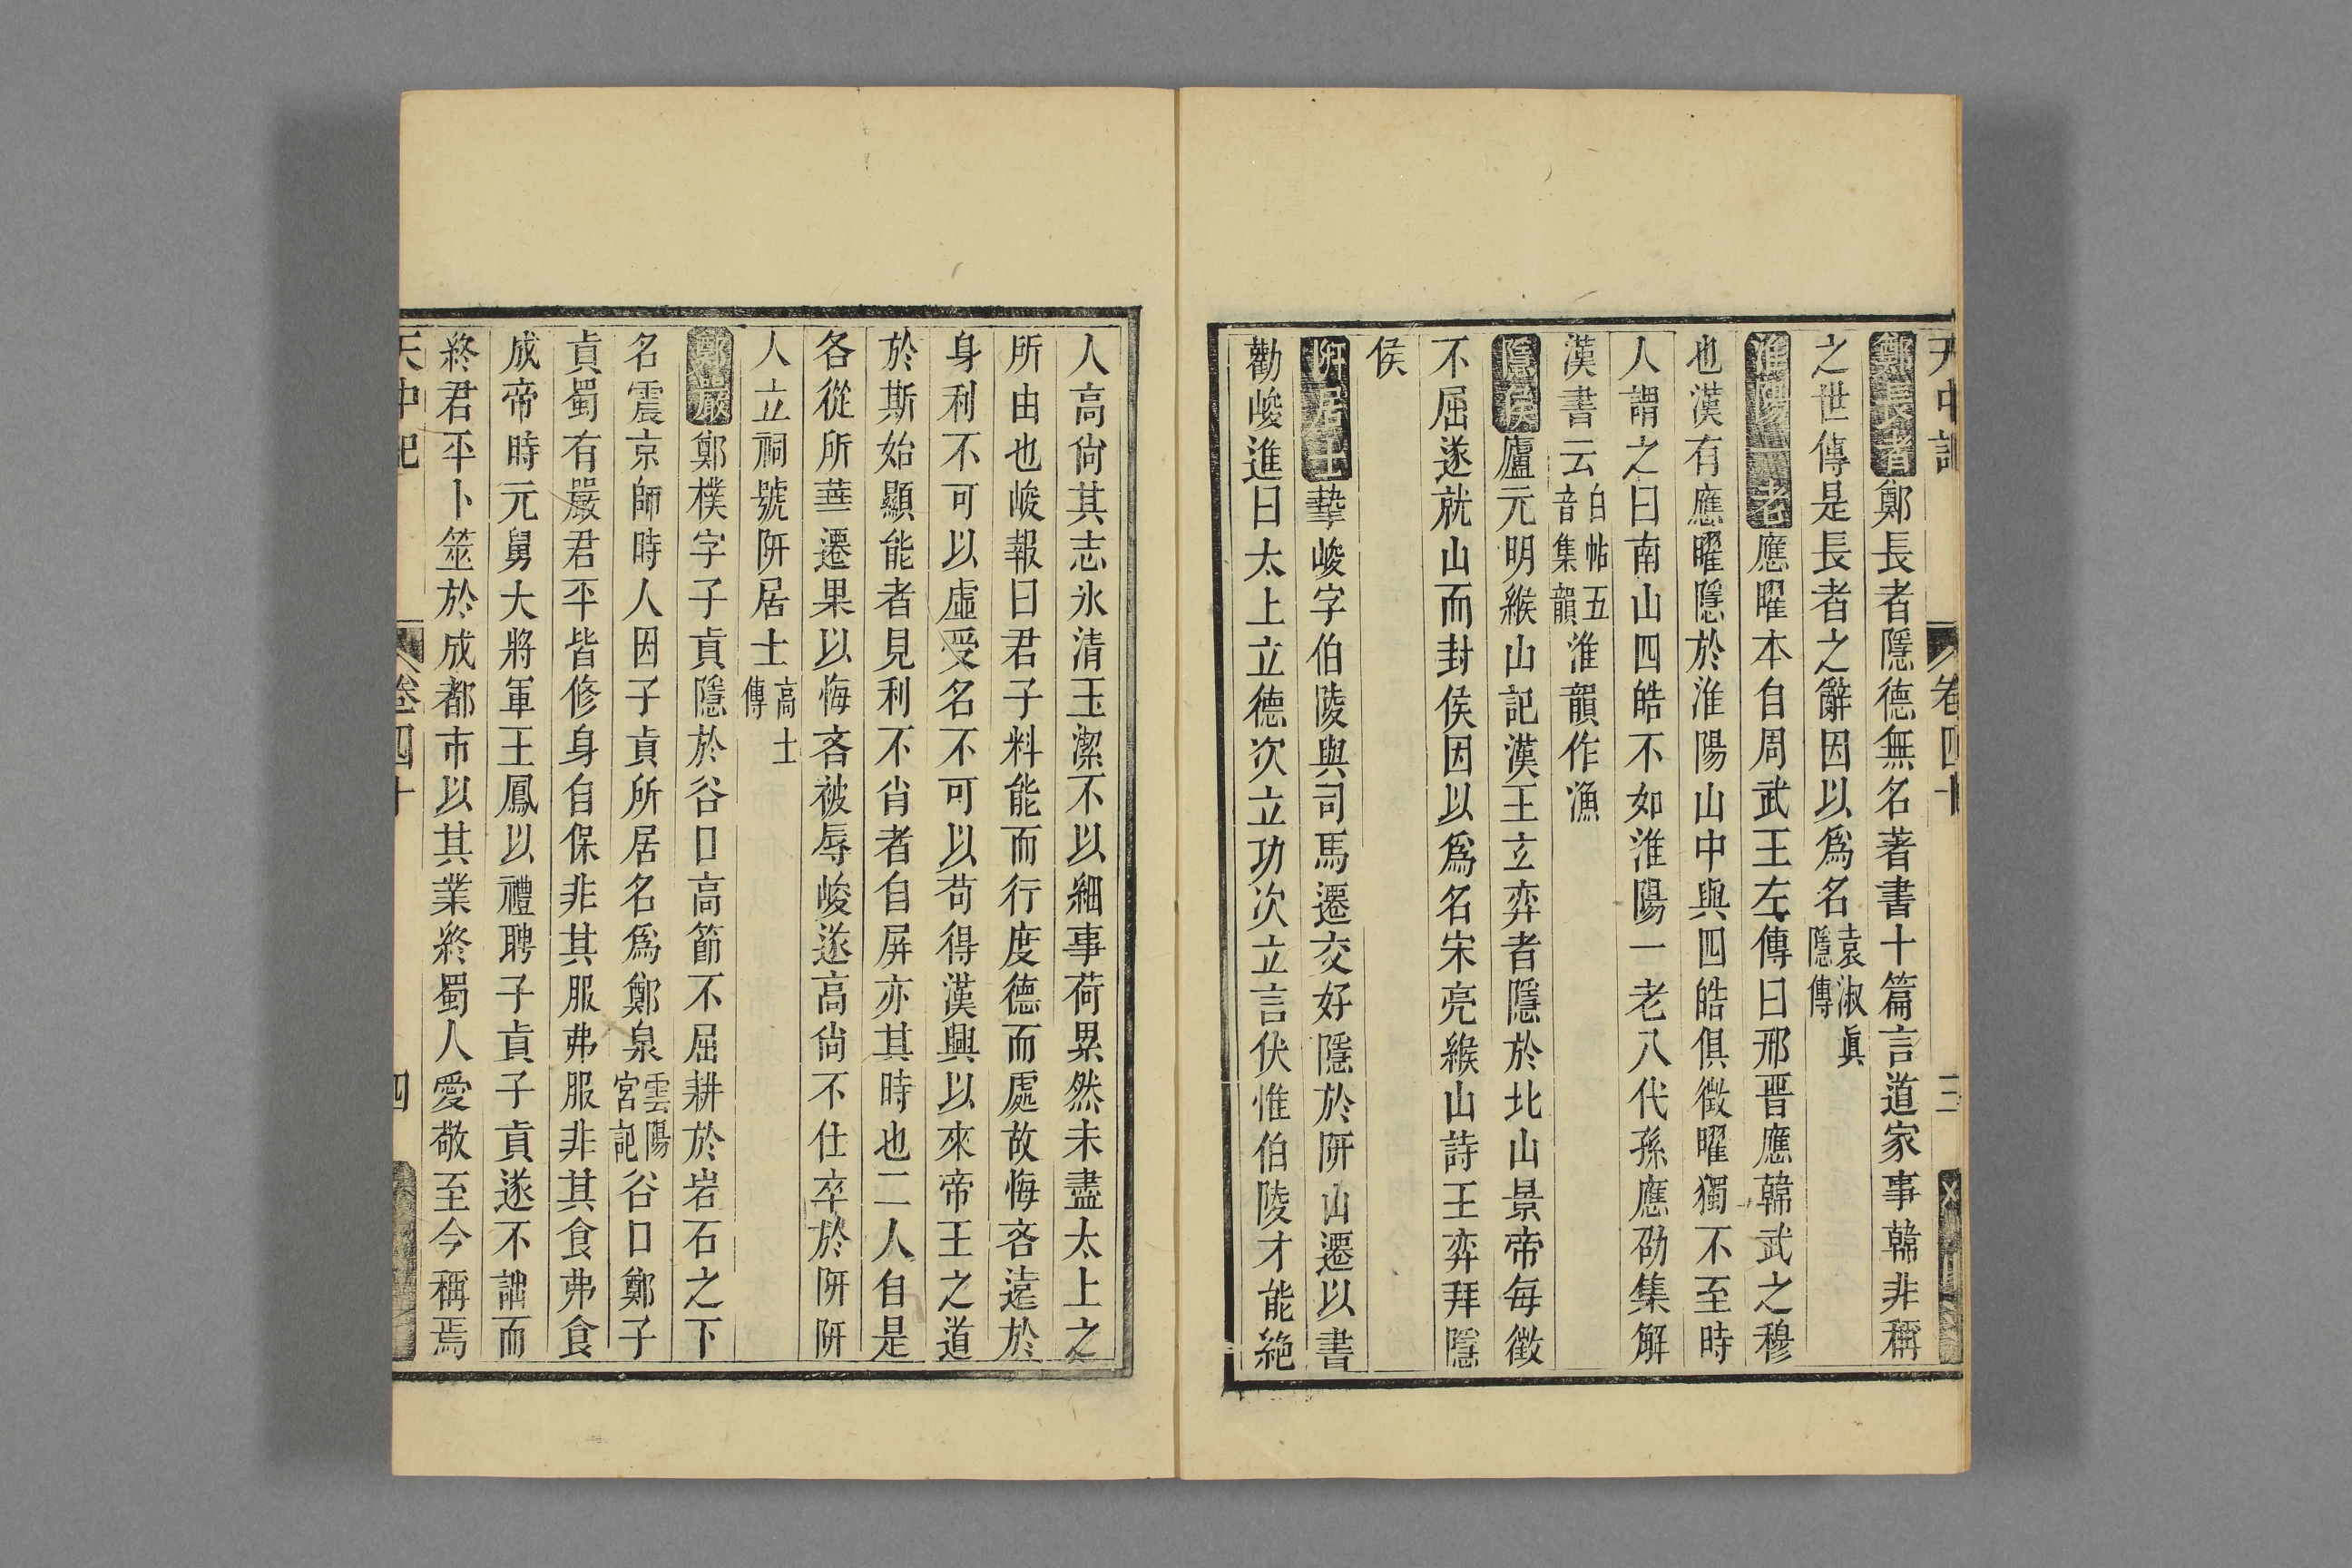 天中記 卷四十 三
鄭長者鄭長者隱德無名著書十篇言道家事韓非稱
之世傳是長者之辭因以爲名袁淑眞隱傳
淮陽一老應曜本自周武王左傳曰邢晉應韓武之穆
也漢有應曜隱於淮陽山中與四皓俱徵曜獨不至時
人謂之曰南山四皓不如淮陽一老八代孫應劭集解
漢書云白帖五音集韻淮韻作漁
隱侯廬元明緱山記漢王玄弈者隱於北山景帝每徵
不屈遂就山而封侯因以爲名宋亮緱山詩王弈拜隱
侯
岍居士摯峻字伯陵與司馬遷交好隱於岍山遷以書
勸峻進曰太上立德次立功次立言伏惟伯陵才能絶
人高尙其志氷清玉潔不以細事荷累然未盡太上之
所由也峻報曰君子料能而行度德而處故悔吝遠於
身利不可以虛受名不可以苟得漢興以來帝王之道
於斯始顯能者見利不肖者自屏亦其時也二人自是
各從所華遷果以悔吝被辱峻遂高尙不仕卒於岍岍
人立祠號岍居士高士傳
鄭嚴鄭樸字子貞隱於谷口高節不屈耕於岩石之下
名震京師時人因子貞所居名爲鄭泉雲陽宮記谷口鄭子
貞蜀有嚴君平皆修身自保非其服弗服非其食弗食
成帝時元舅大將軍王鳳以禮聘子貞子貞遂不詘而
終君平卜筮於成都市以其業終蜀人愛敬至今稱焉
天中記 卷四十 四